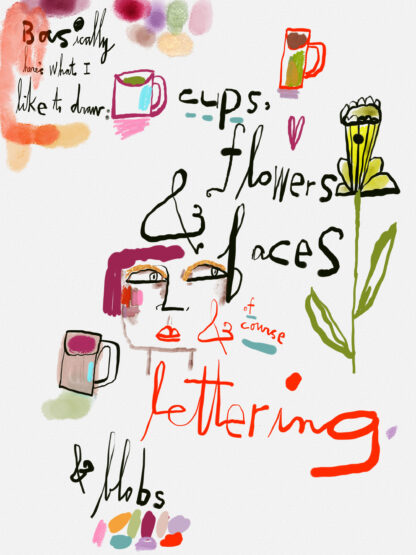 Basically
here's what I
like to draw:
cups,
flowers
& faces
& of
course
lettering,
& blobs